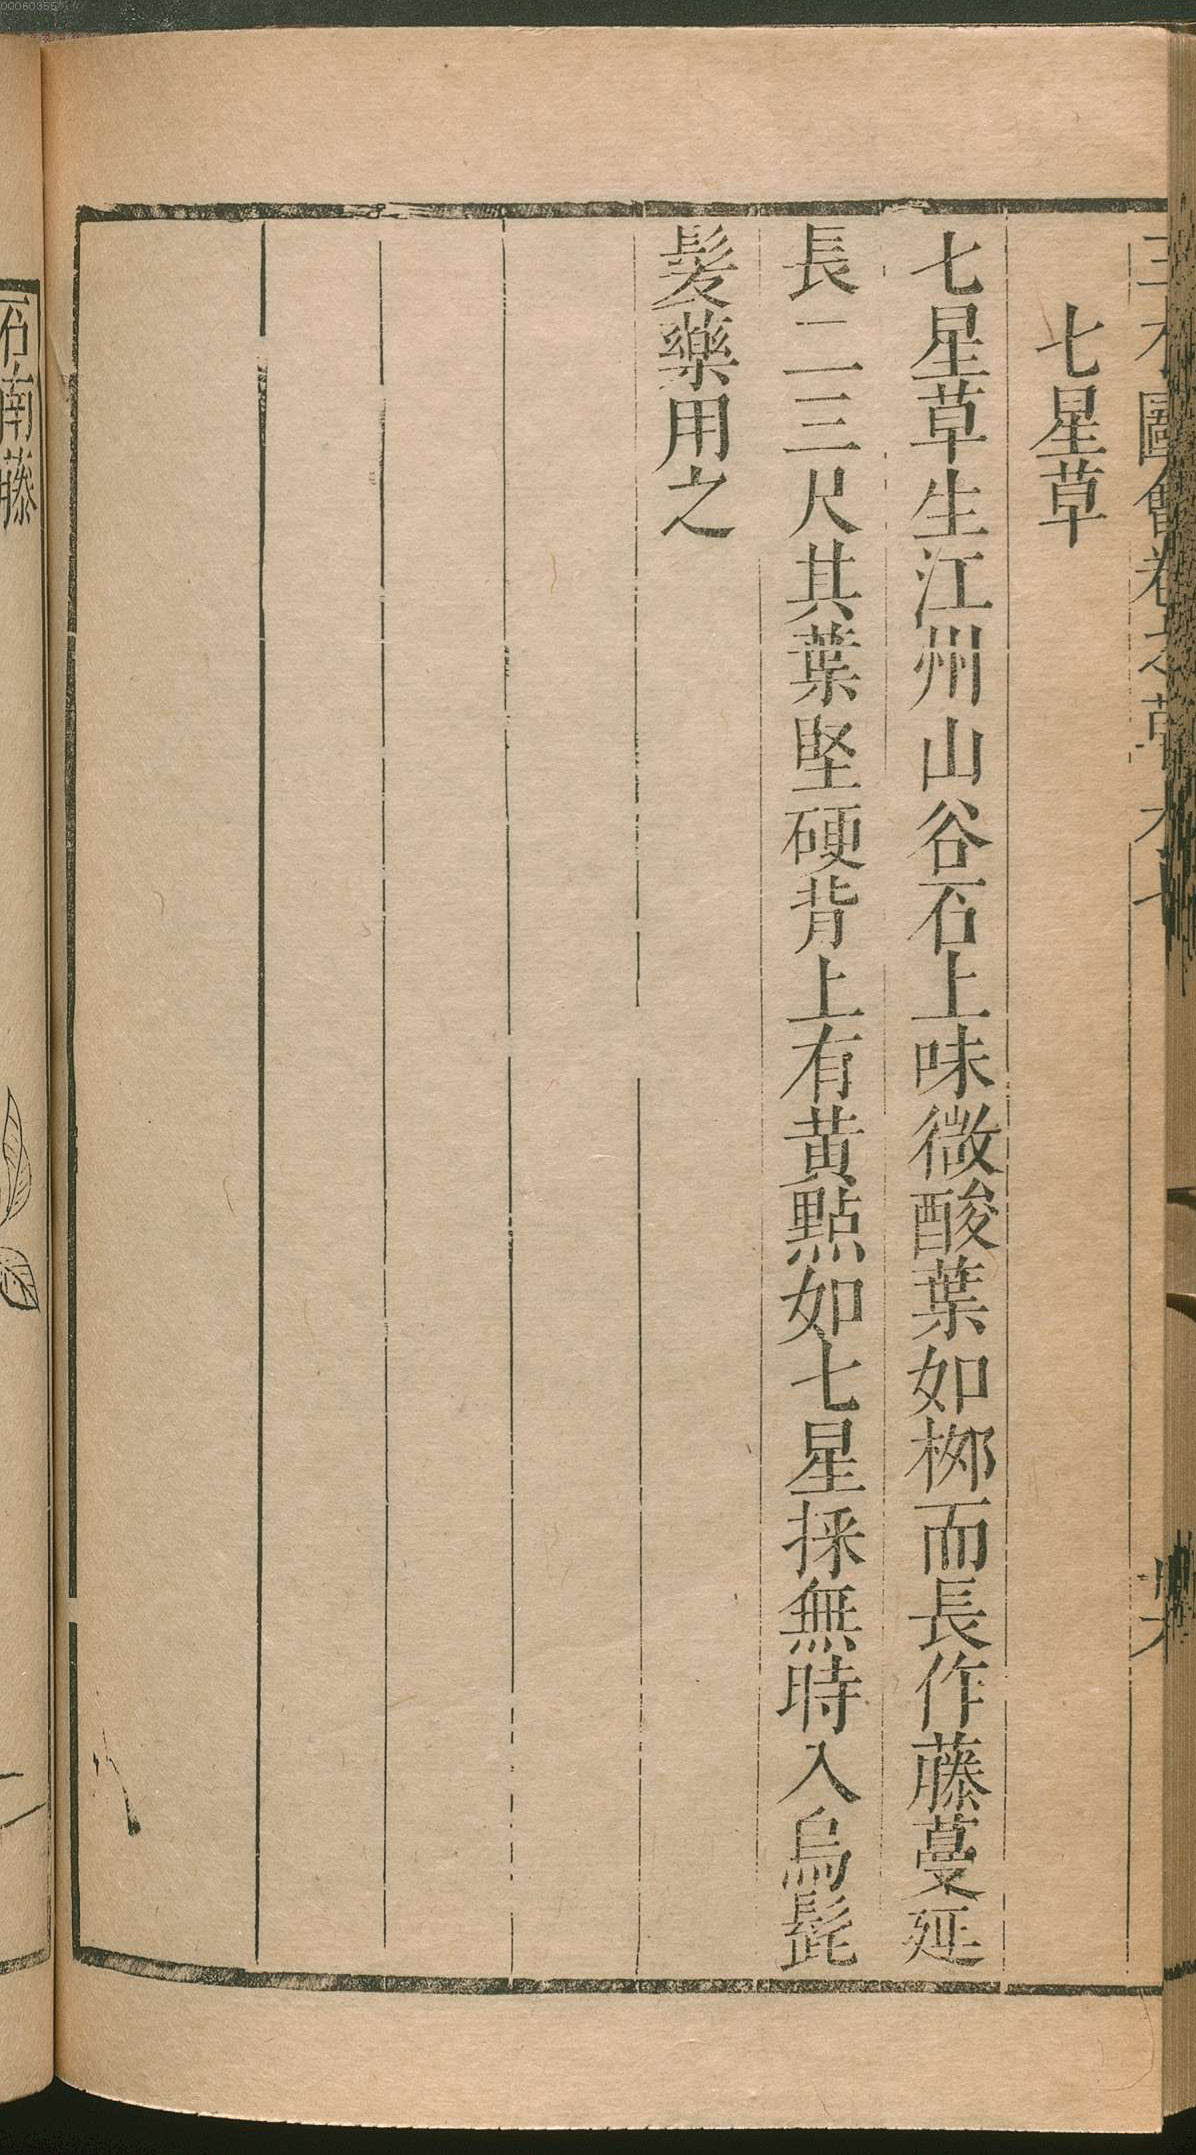 三才圖會卷之草木七
七星草
七星草生江州山谷石上味微酸葉如栁而長作藤蔓延
長二三尺其葉堅硬背上有黃點如七星採無時入烏髭
髮藥用之
石南藤
00060355